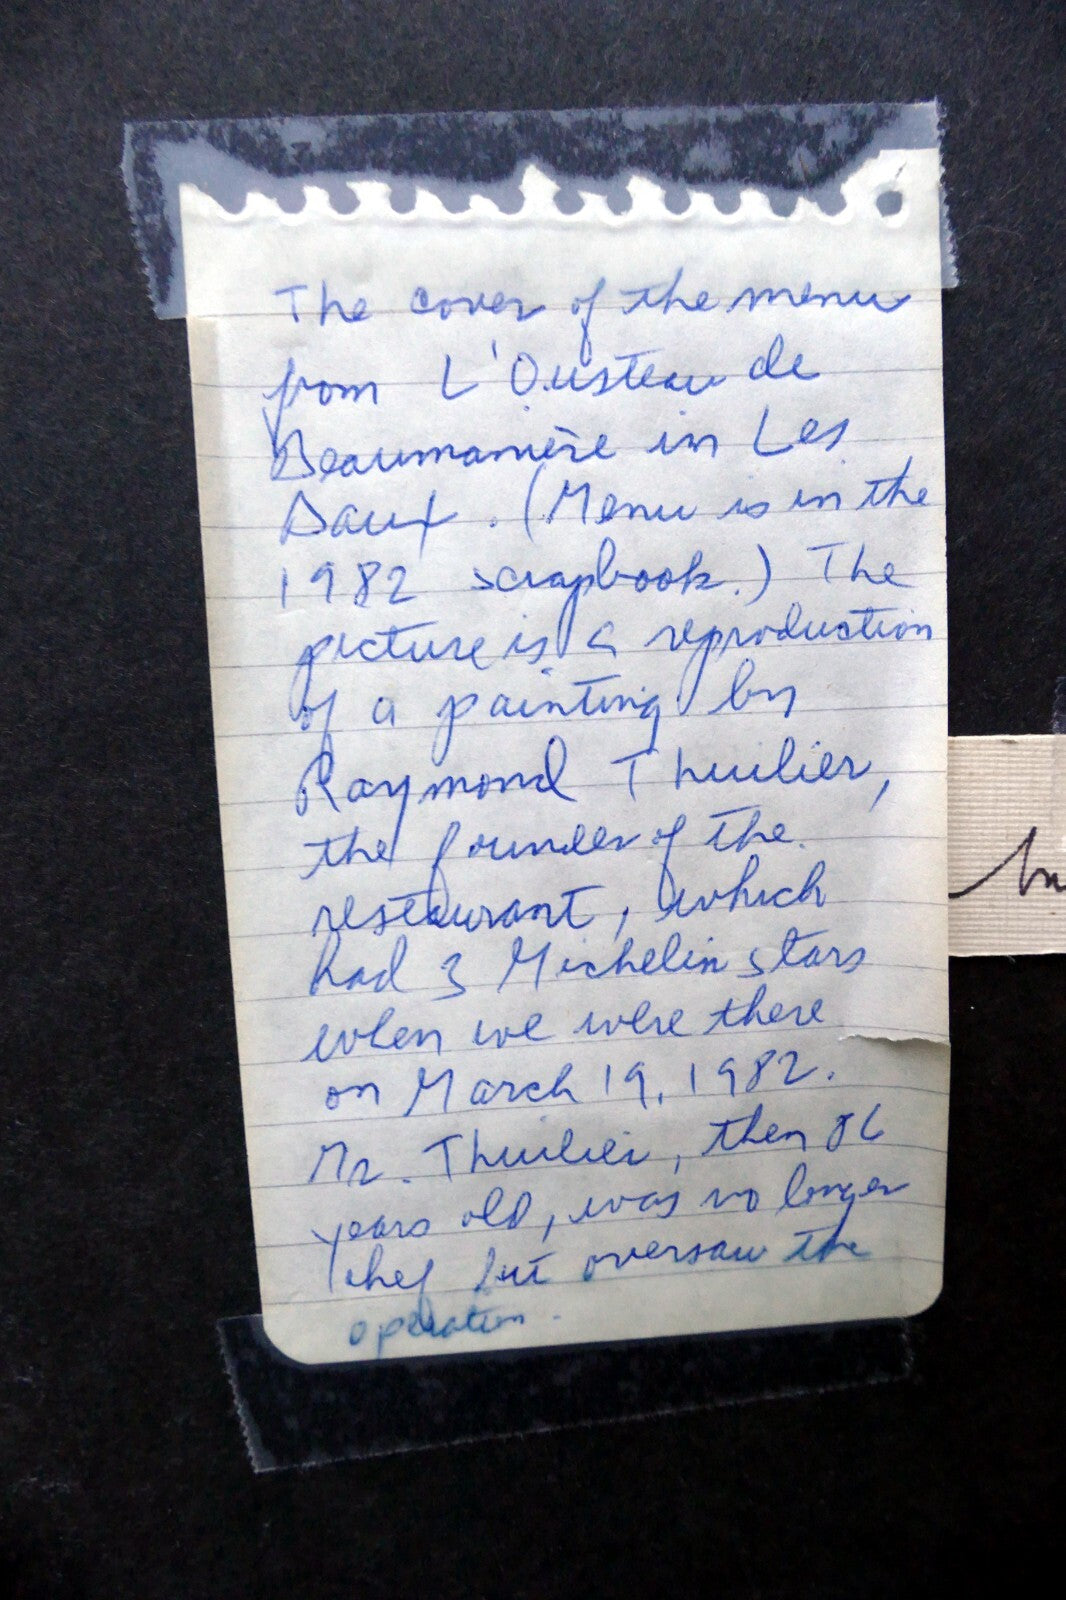 The cover of the menu
from L'Ousteau de
Beaumanière in Les
Baux. (Menu is in the
1982 scrapbook.) The
picture is a reproduction
of a painting by
Raymond Thuilier,
the founder of the
restaurant, which
had 3 Michelin stars
when we were there
on March 19, 1982.
Mr. Thuilier, then 86
years old, was no longer
chef but oversaw the
operation.